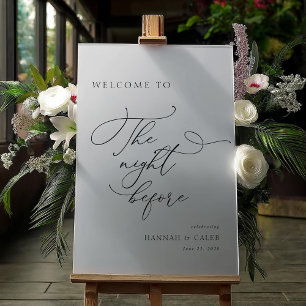 WELCOME TO
The
night
before
celebrating
HANNAH & CALEB
June 23, 2026